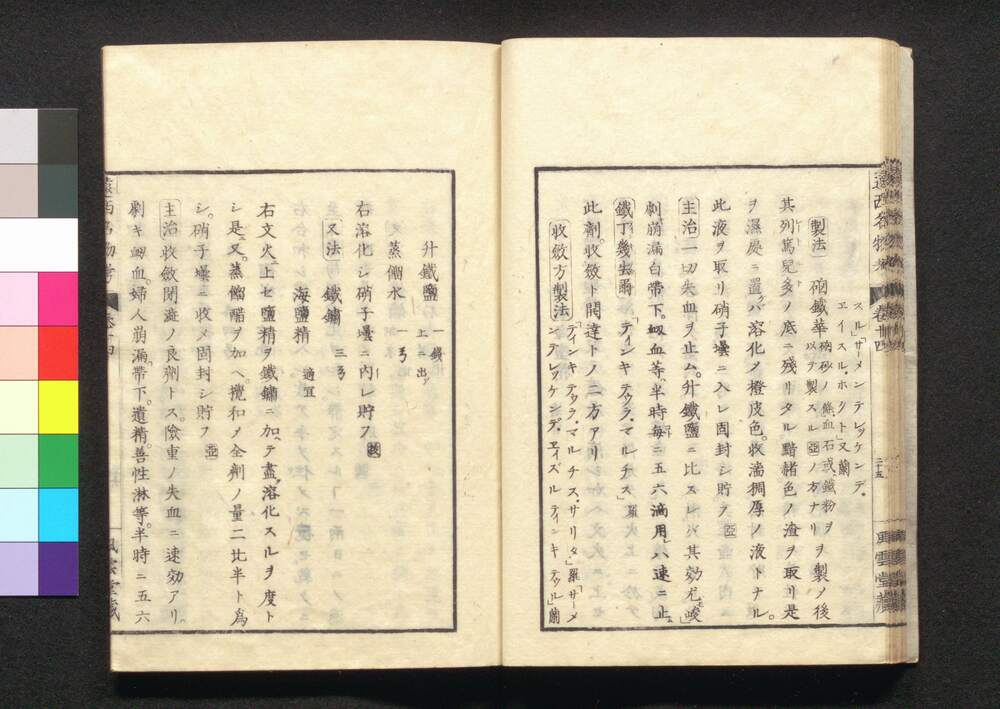 スル「サーメンテレッケンデ。
エイスル、ホクト」又蘭
製法 𥐻鐵華𥐻砂ノ條、血石或鐵粉ヲ以テ製スル亞ノ方ナリヲ製ノ後
其列篤兒多ノ底ニ殘リタル黯赭色ノ渣ヲ取リ是
ヲ濕處ニ置バ溶化メ橙皮色。收濇稠厚ノ液トナル。
此液ヲ取リ硝子壜ニ入レ固封シ貯フ 亞
主治 一切失血ヲ止ム。升鐵鹽ニ比スレバ其効尤峻
刺崩漏白帶下。衂血等、半時每ニ五六滴用レハ速ニ止
鐵丁幾去爾 「ティンキテュラ、マルチス」羅
此劑。收斂ト開達トノ二方アリ
收斂方製法 「ティンキテュラ、マルチス、サリタ」羅「サーメンテレッケンデ、エイズルティンキテュル」蘭
遠西名物考 卷廿四 二十五 風雲堂藏
升鐵鹽 上ニ出ッ 一錢
又蒸餾水 一ゟ
右溶化シ硝子壜ニ內レ貯フ
又法 鐵鏽 三ゟ
海鹽精 適宜
右文火ニ上セ鹽精ヲ鐵鏽ニ加テ盡溶化スルヲ度ト
シ是ニ又。蒸餾醋ヲ加ヘ。攪和メ全劑ノ量二比半ト爲
シ。硝子壜ニ收メ固封シ貯フ 亞
主治 收斂開濇ノ良劑トス。險重ノ失血ニ速効アリ。
劇キ衂血。婦人崩漏、帶下。遺精。善性淋等。半時ニ五六